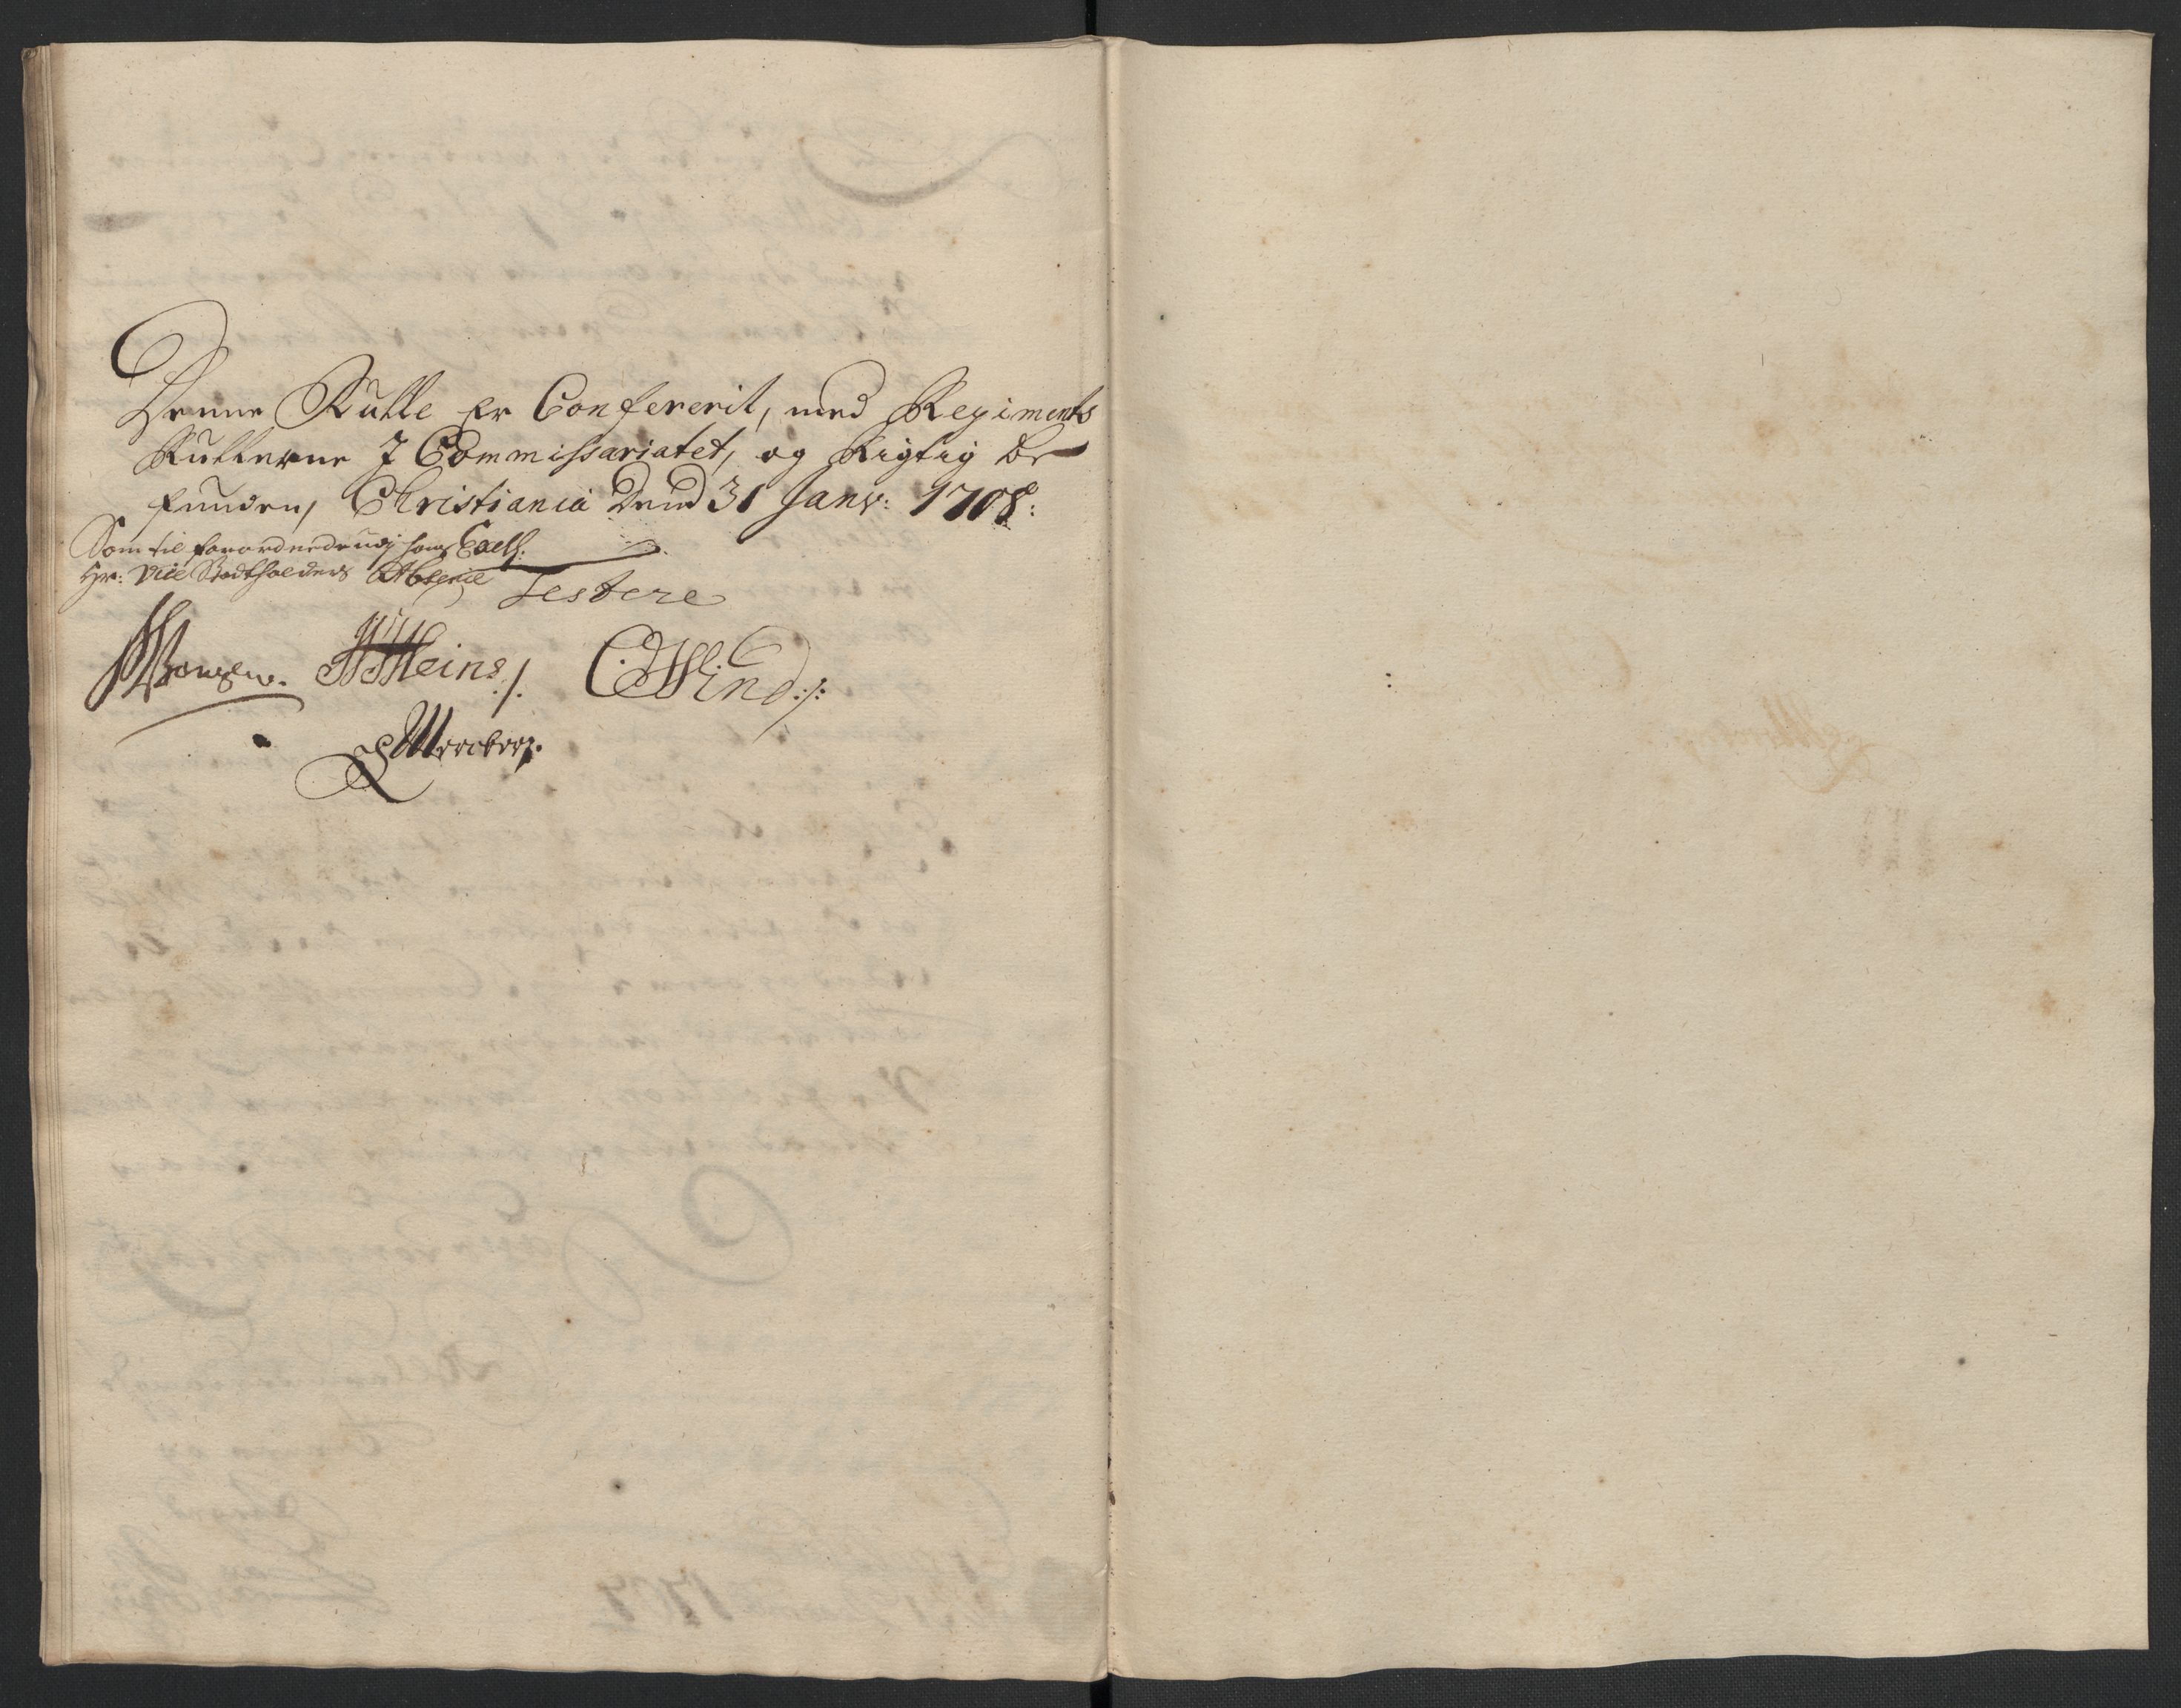 Denne Rulle er Confererit, med Regiments
Rullerne I Commissariatet, og Rigtig be
funden, Christiania Dend 31 Janv: 1708:
Som til forordnede udj hans Excell:
Hr: Vice Stadtholders Absence
Testere
HHeins ./. CWind :/: